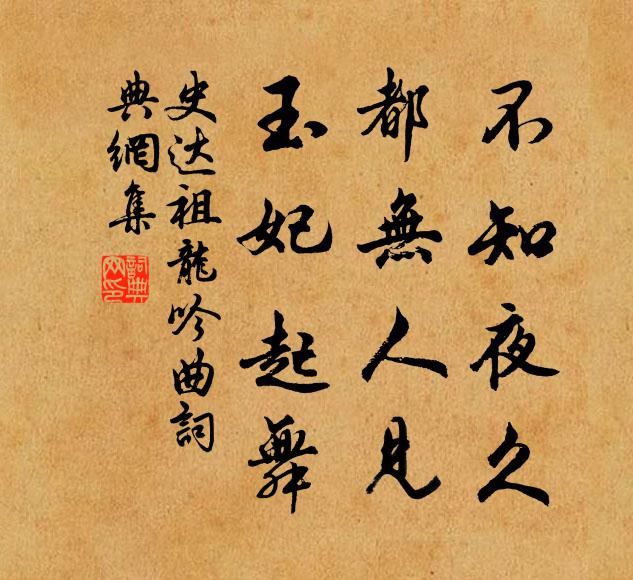 不知夜久
都無人見
玉妃起舞
史达祖龍吟曲詞
典網集
詞典
网印